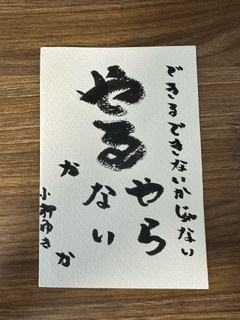 できるできないかじゃない
やる
か
やら
ない
か
ゆき